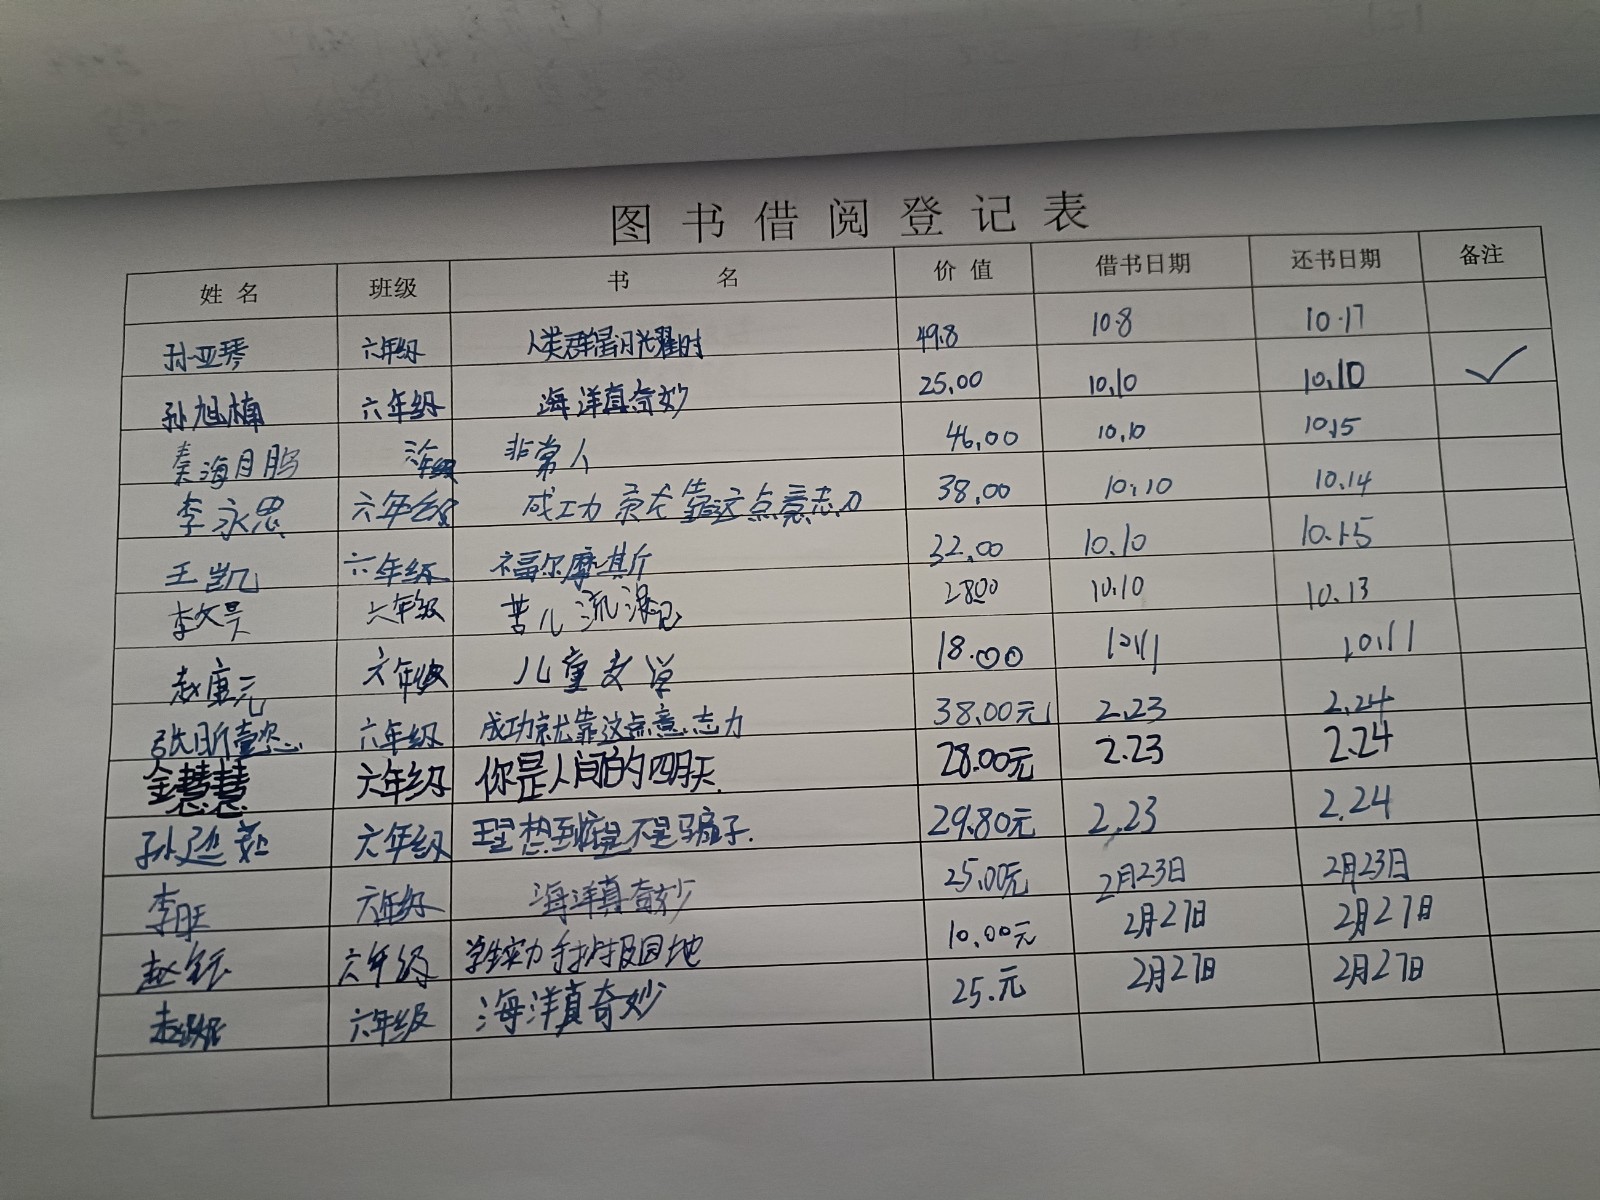 图书借阅登记表
姓名 班级 书名 价值 借书日期 还书日期 备注
孙亚琴 六年级 人类群星闪光耀时 49.8 10.8 10.17
孙旭楠 六年级 海洋真奇妙 25.00 10.10 10.10 ✓
秦海月鹏 六年级 非常人 46.00 10.10 10.15
李永思 六年级 成功就靠这点意志力 38.00 10.10 10.14
王凯 六年级 福尔摩斯 32.00 10.10 10.15
李文昊 六年级 苦儿流浪记 28.00 10.10 10.13
赵唐元 六年级 儿童文学 18.00 10.11 10.11
张昕 六年级 成功就靠这点意志力 38.00元 2.23 2.24
金慧慧 六年级 你是人间的四月天 28.00元 2.23 2.24
孙 六年级 理想到底是不是骗子. 29.80元 2.23 2.24
李旺 六年级 海洋真奇妙 25.00元 2月23日 2月23日
赵 六年级 学生实力手抄报园地 10.00元 2月27日 2月27日
六年级 海洋真奇妙 25.元 2月27日 2月27日